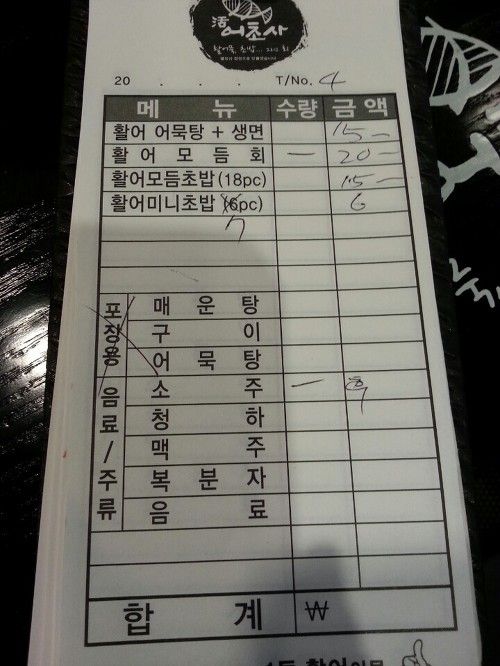 活
어초사
활어묵, 초밥... 그리고 회
20 . . . T/No. 4
메 뉴 수량 금액
활어 어묵탕 + 생면 15 -
활 어 모 듬 회 一 20 -
활어모듬초밥(18pc) 15 -
활어미니초밥 (6pc) 6
7
포장용 매 운 탕
구 이
어 묵 탕
음료/주류 소 주 一 후
청 하
맥 주
복 분 자
음 료
합 계 ₩